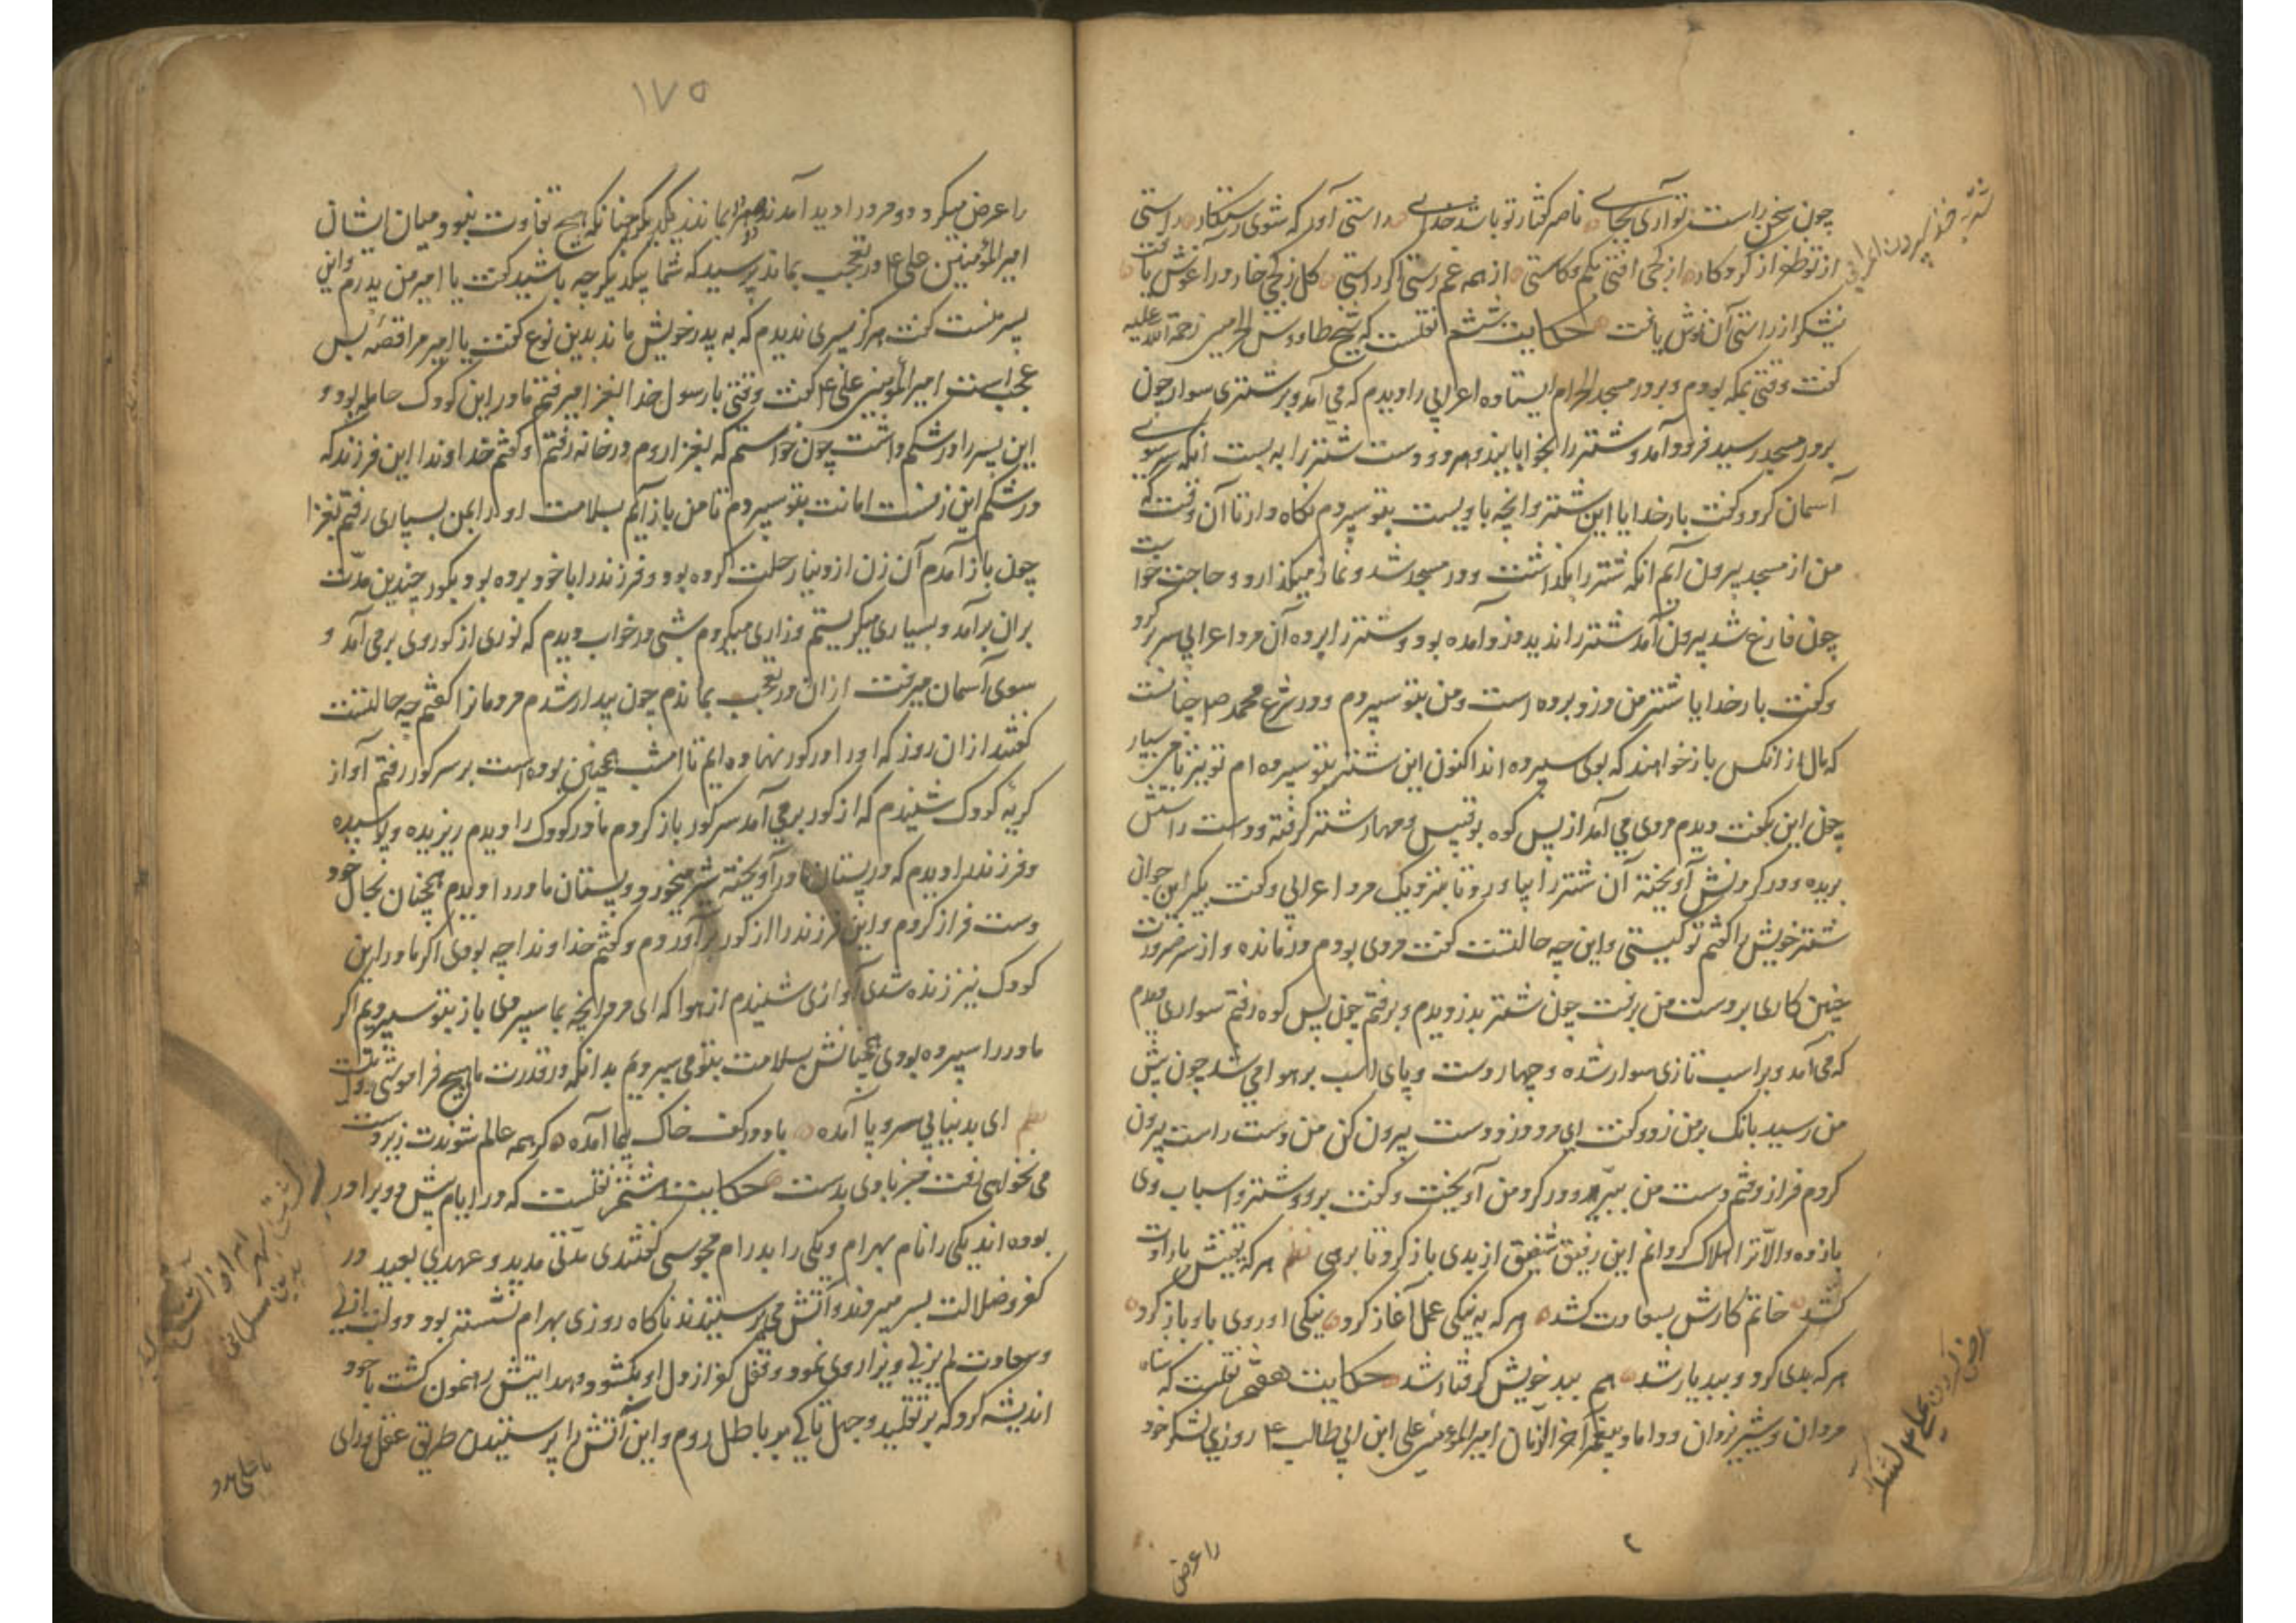 چون بسخن راست تو آری بجای ناصر گفتار تو باشد خدای راستی آور که شوی رستگار راستی
از تو ظفر از کردگار از کجی افتی بکم و کاستی از همه غم رستی اگر راستی گل ز کجی خار در آغوش یافت
نیشکر از راستی آن نوش یافت حکایت ششم نقلست که شیخ طاووس الحرمین رحمة الله علیه
گفت وقتی بمکه بودم و بر در مسجد الحرام ایستاده اعرابی را دیدم که می آمد و بر شتری سوار چون
بر در مسجد رسید فرود آمد و شتر را بخوابانید و هر دو دست شتر را به بست انگه سر سوی
آسمان کرد و گفت بار خدایا این شتر و انچه باویست بتو سپردم نگاه دار تا آن وقت که
من از مسجد بیرون آیم انگه شتر را بگذاشت و در مسجد شد و نماز میگذارد و حاجت خواست
چون فارغ شد بیرون آمد شتر را ندید دزد آمده بود و شتر را برده آن مرد اعرابی سر بر کرد
و گفت بار خدایا شتر من دزد برده است و من بتو سپردم و در شرع محمد ص چنانست
که مال از انکس باز خواهند که بوی سپرده اند اکنون این شتر بتو سپرده ام تو نیز بامن سپار
چون این بگفت دیدم مردی می آمد از پس کوه بوقبیس و مهار شتر گرفته و دست راستش
بریده و در گردنش آویخته آن شتر را بیاورد تا بنزدیک مرد اعرابی و گفت بگیر این جوان
شتر خویش را گفتم تو کیستی و این چه حالتست گفت مردی بودم درمانده و از سر ضرورت
چنین کاری بر دست من برفت چون شتر بدزدیدم و برفتم چون پس کوه رفتم سواری دیدم
که می آمد و بر اسب تازی سوار شده و چهار دست و پای اسب بر هوا می شد چون پیش
من رسید بانگ بر من زد و گفت ای مرد دزد دست بیرون کن من دست راست بیرون
کردم فراز رفتم دست من ببرید و در گردن من آویخت و گفت برو و شتر و اسباب وی
باز ده والا ترا هلاک گردانم این رفیق شفیق از بدی باز گرد تا برهی نظم هر که بفیتش بارادت
کشد خاتم کارش بسعادت کشد هر که به نیکی عمل آغاز کرد نیکی او روی باو باز کرد
هر که بدی کرد و ببد یار شد هم ببد خویش گرفتار شد حکایت هفتم نقلست که شاه
مردان و شیر یزدان و داماد پیغمبر آخر الزمان امیر المؤمنین علی ابن ابی طالب ع روزی لشکر خود
را عرض
را عرض میکرد دو مرد را دید آمدند هر دو بماند یکدیگر چنانکه هیچ تفاوت نبود میان ایشان
امیر المؤمنین علی ع در تعجب بماند پرسید که شما یکدیگر چه باشید گفت یا امیر من پدرم و این
پسر منست گفت هرگز پسری ندیدم که به پدر خویش ماند بدین نوع گفت یا امیر مرا قصه بس
عجب است امیر المؤمنین علی ع گفت وقتی با رسول خدا بغزا میرفتم مادر این کودک حامله بود و
این پسر را در شکم داشت چون خواستم که بغزا روم در خانه رفتم و گفتم خداوندا این فرزند که
در شکم این زنست امانت بتو سپردم تا من باز آیم بسلامت او را بمن بسپاری رفتم بغزا
چون باز آمدم آن زن از دنیا رحلت کرده بود و فرزند را با خود برده بود بگور چندین مدت
بران برآمد و بسیاری میگریستم و زاری میکردم شبی در خواب دیدم که نوری از گور وی بر می آمد و
سوی آسمان میرفت از ان در تعجب بماندم چون بیدار شدم مردمانرا گفتم چه حالتست
گفتند از ان روز که او را در گور نهاده ایم تا امشب همچنین بوده است بر سر گور رفتم آواز
گریه کودک شنیدم که از گور بر می آمد سر گور باز کردم مادر کودک را دیدم ریزیده و پوسیده
و فرزند را دیدم که در پستان مادر آویخته شیر میخورد و پستان مادر را دیدم همچنان بحال خود
دست فراز کردم و این فرزند را از گور بر آوردم و گفتم خداوندا چه بودی اگر مادر این
کودک نیز زنده شدی آوازی شنیدم از هوا که ای مرد انچه بما سپردی باز بتو سپردیم اگر
مادر را سپرده بودی همچنانش بسلامت بتو می سپردیم بدانکه در قدرت ما هیچ فراموشی روا نیست
نظم ای بدنیا بی سر و پا آمده باد در کف خاک پیما آمده گر همه عالم شوندت زیر دست
می نخواهی رفت جز بادی بدست حکایت هشتم نقلست که در ایام پیش دو برادر
بوده اند یکی را نام بهرام و یکی را بدرام مجوسی گفتندی مدتی مدید و عهدی بعید در
کفر و ضلالت بسر میبردند و آتش می پرستیدند ناگاه روزی بهرام نشسته بود دولت ازلی
و سعادت لم یزلی ویرا روی نمود و قفل کفر از دل او بگشود و هدایتش رهنمون گشت با خود
اندیشه کرد که بر تقلید و جهل تا کی بر باطل روم و این آتش را پرستیدن طریق عقل و رای
۱۷۵